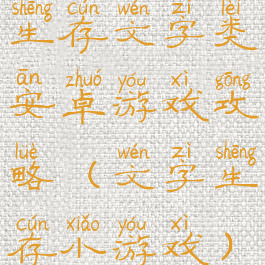 shēng cún wén zì lèi
生存文字类
ān zhuó yóu xì gōng
安卓游戏攻
lüè wén zì shēng
略（文字生
cún xiǎo yóu xì
存小游戏）